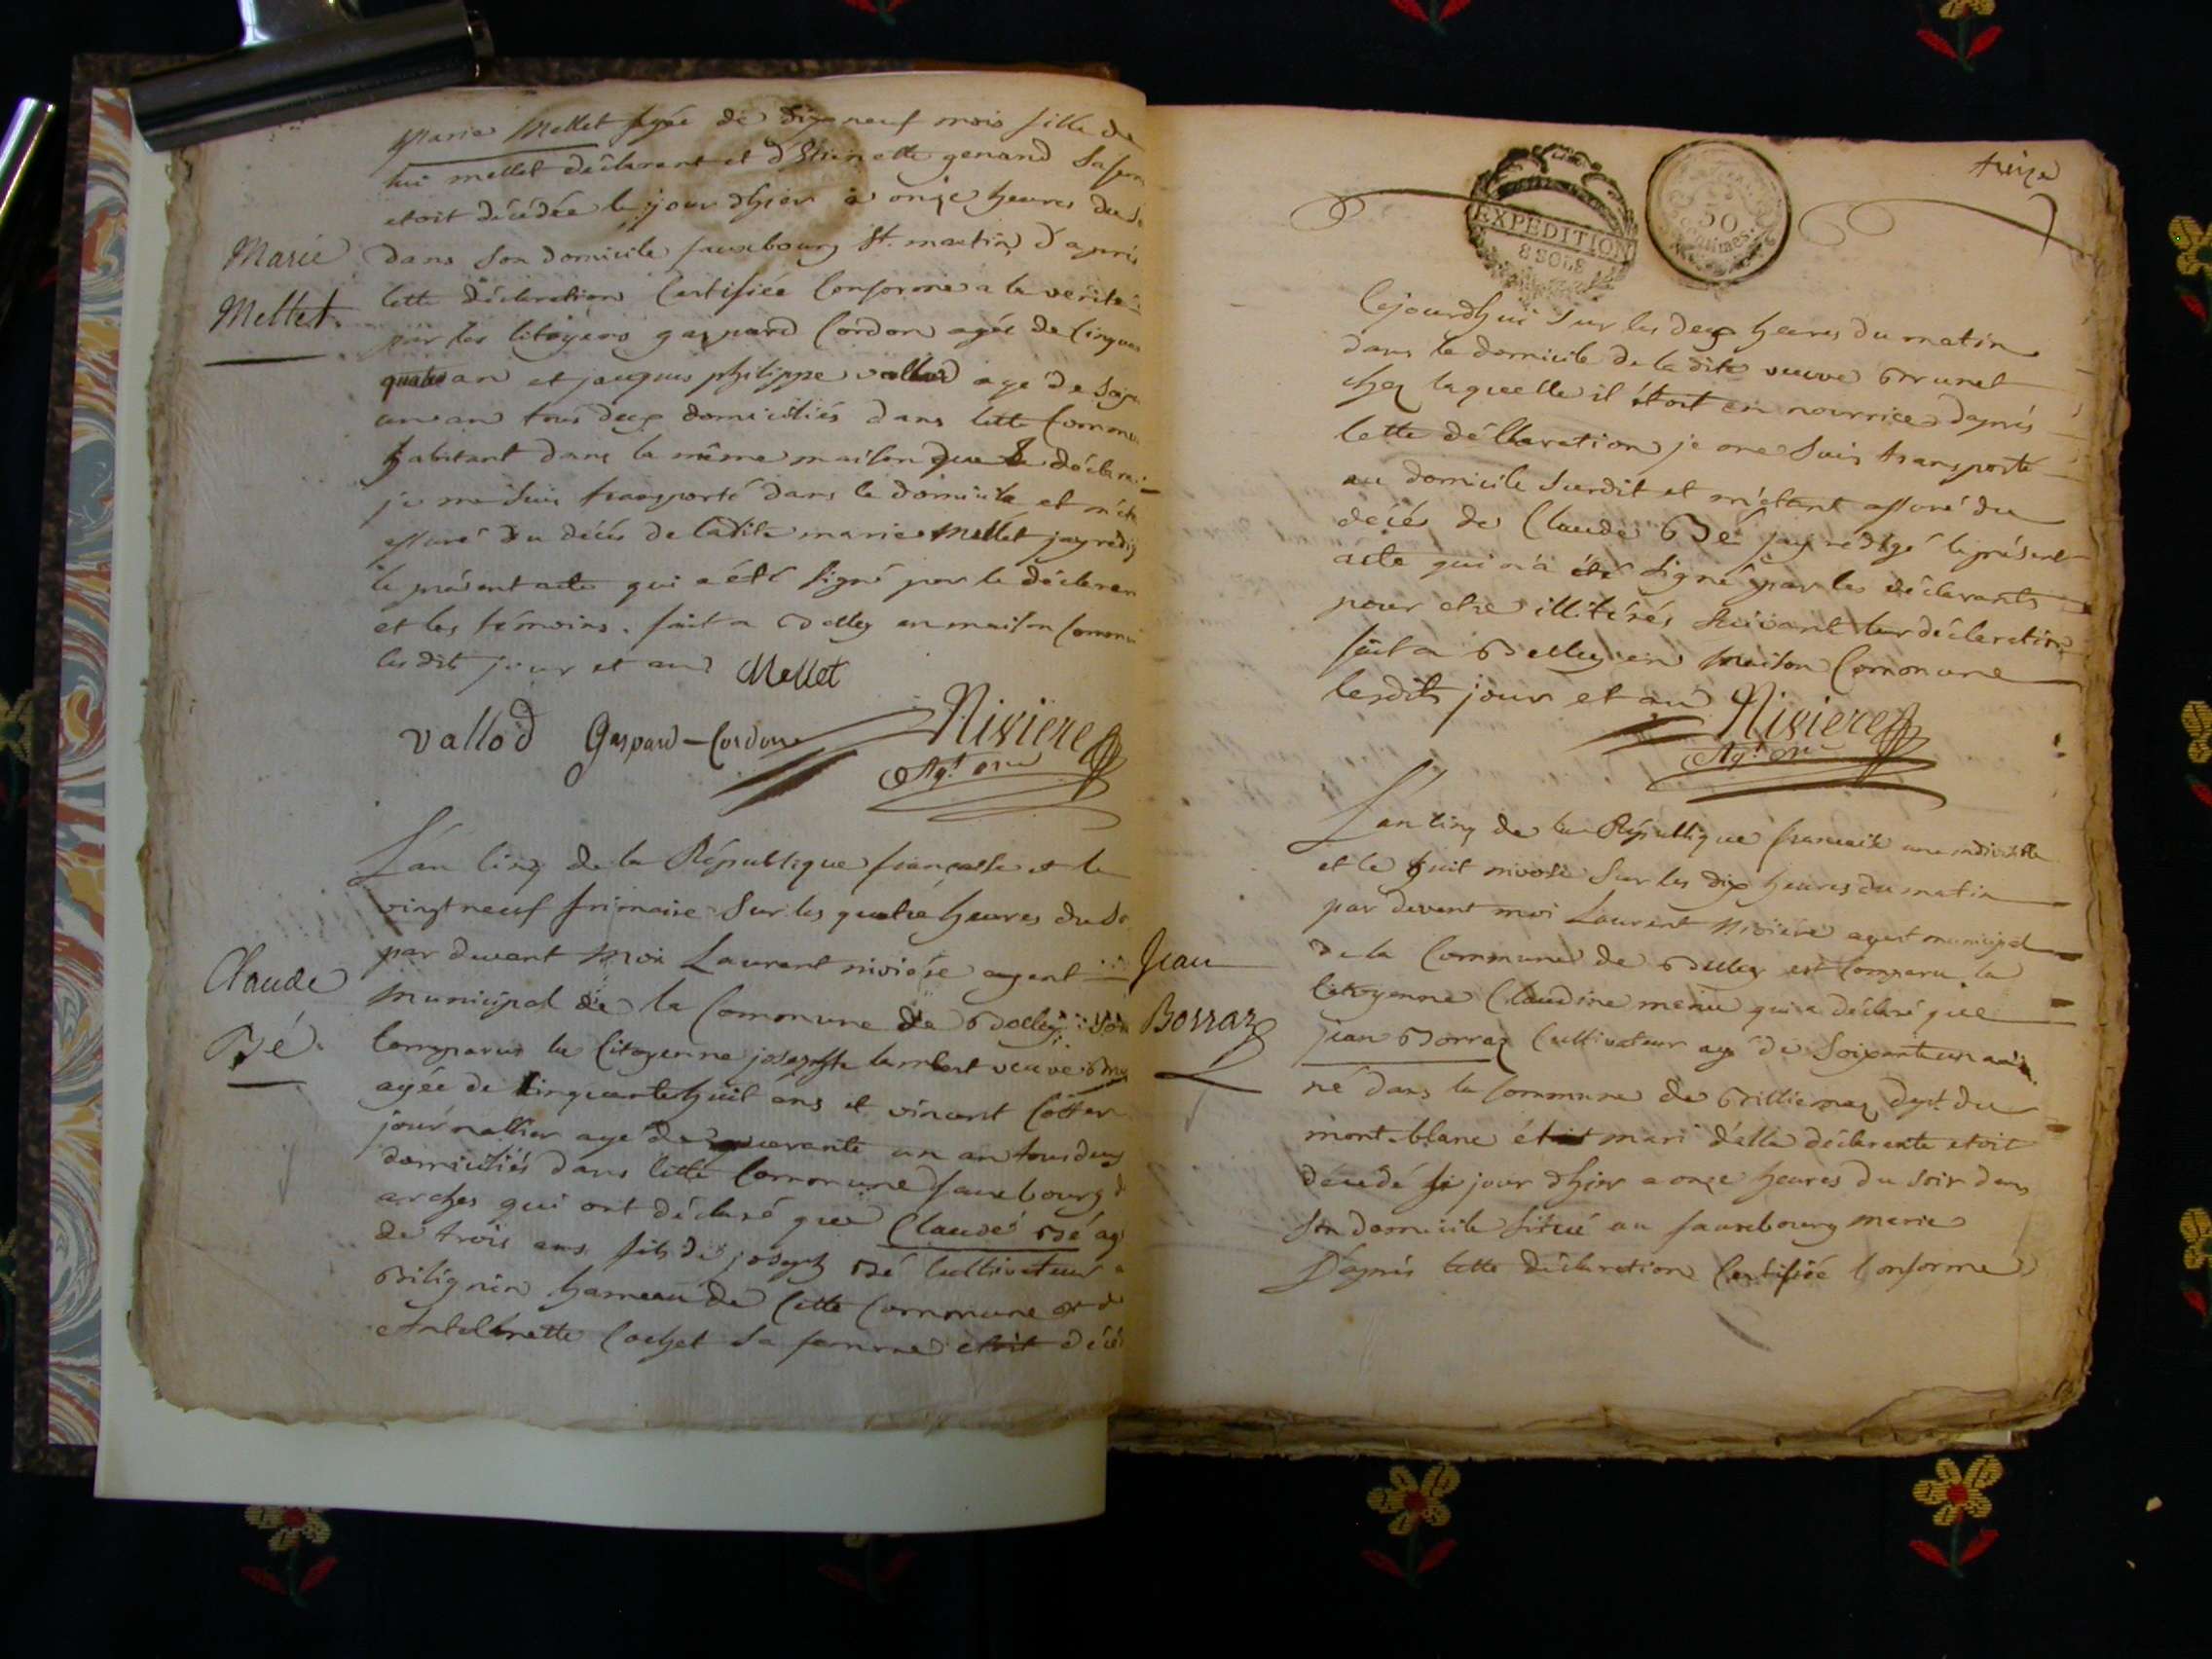 Marie Mellet agée de dix neuf mois fille de
lui mellet déclarant et d'Etiennette genand sa fem
etoit décédée le jour dhier a onze heures du
dans son domicile fauxbourg St. martin, d'après
Marie
Mellet.
cette déclaration certifiée conforme a la verité
par les citoyens gaspard Cordon agée de cinqua
quatre an et jacques philippe vallod age de soix
un an tous deux domiciliés dans cette commu
habitant dans la même maison que le déclara
je me suis transporté dans le domicile et m'ét
assuré du décés de ladite marie Mellet jay rédig
le présent acte qui a été signé par le déclaran
et les témoins. fait a Belley en maison commu
les dits jour et an Mellet
vallod Gaspard-Cordon Nivière
Agt. ml
L'an cinq de la République française et le
vingt neuf frimaire sur les quatre heures du so
par devant moi Laurent nivière agent
Claude
Bé.
municipal de la Commune de Belley son
comparus la citoyenne josephte lambert veuve Bru
agée de cinquante huit ans et vincent
journallier agé de quarante un an tous deux
domiciliés dans cette commune fauxbourg d
arches qui ont déclaré que Claude Bé ag
de trois ans fils de joseph Bé cultivateur a
Billignin hameau de cette commune et d
Antoinette Cochet sa femme etoit décé
treize
EXPEDITION
8 SOLS
50
centimes.
Cejourdhui sur les deux heures du matin
dans le domicile de la dite veuve Brunet
chez laquelle il étoit en nourrice, dapres
cette déclaration je me suis transporté
au domicile susdit et m'étant assuré du
décés de Claude Bé jay rédigé le présent
acte qui n'a été signé par les déclarants
pour etre illitérés suivant leur déclaration
fait a Belley en maison Commune
lesdits jour et an Nivière
Agt. ml
L'an cinq de la République francaise une indivisible
et le huit nivose sur les dix heures du matin
par devant moi Laurent Nivière agent municipal
Jean
Borraz
de la Commune de Belley est comparu la
citoyenne Claudine meniu qui a déclaré que
jean Borraz cultivateur agé de soixante un an
né dans la commune de dept. du
mont-blanc étoit mari d'elle déclarante etoit
décedé le jour dhier a onze heures du soir dans
son domicile situé au fauxbourg marie
D'après cette déclaration certifiée conforme